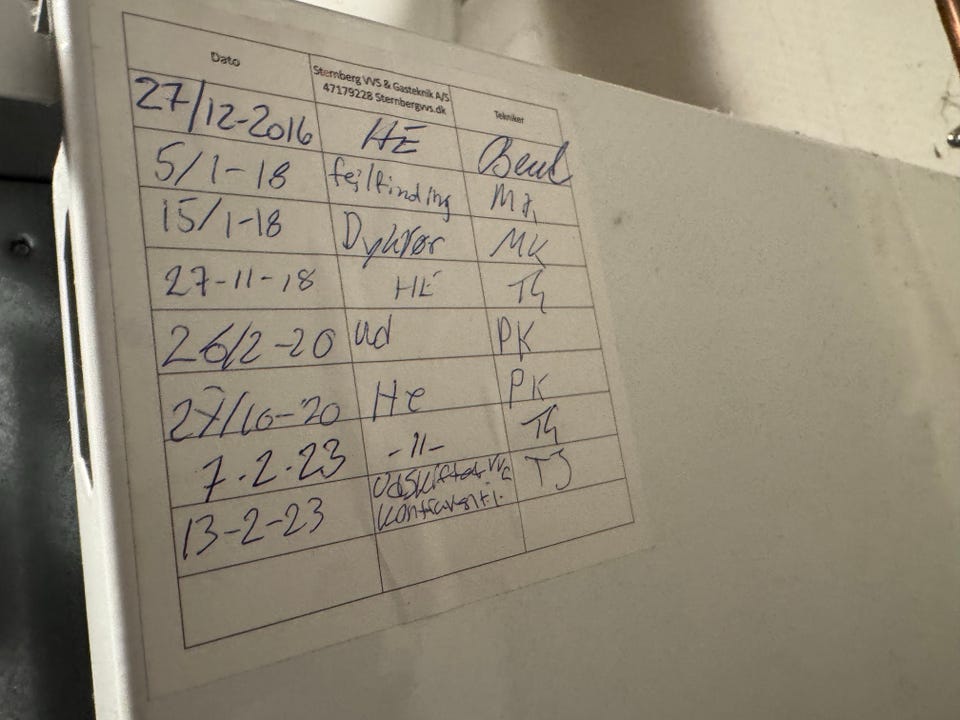 Dato
Sternberg VVS & Gasteknik A/S
47179228 Sternbergvvs.dk
Tekniker
27/12-2016 HE
5/1-18 fejlfinding
15/1-18 Dykrør MK
27-11-18 HE
26/2-20 ud PK
27/10-20 He PK
7.2.23 -11-
13-2-23 Udskiftet TJ